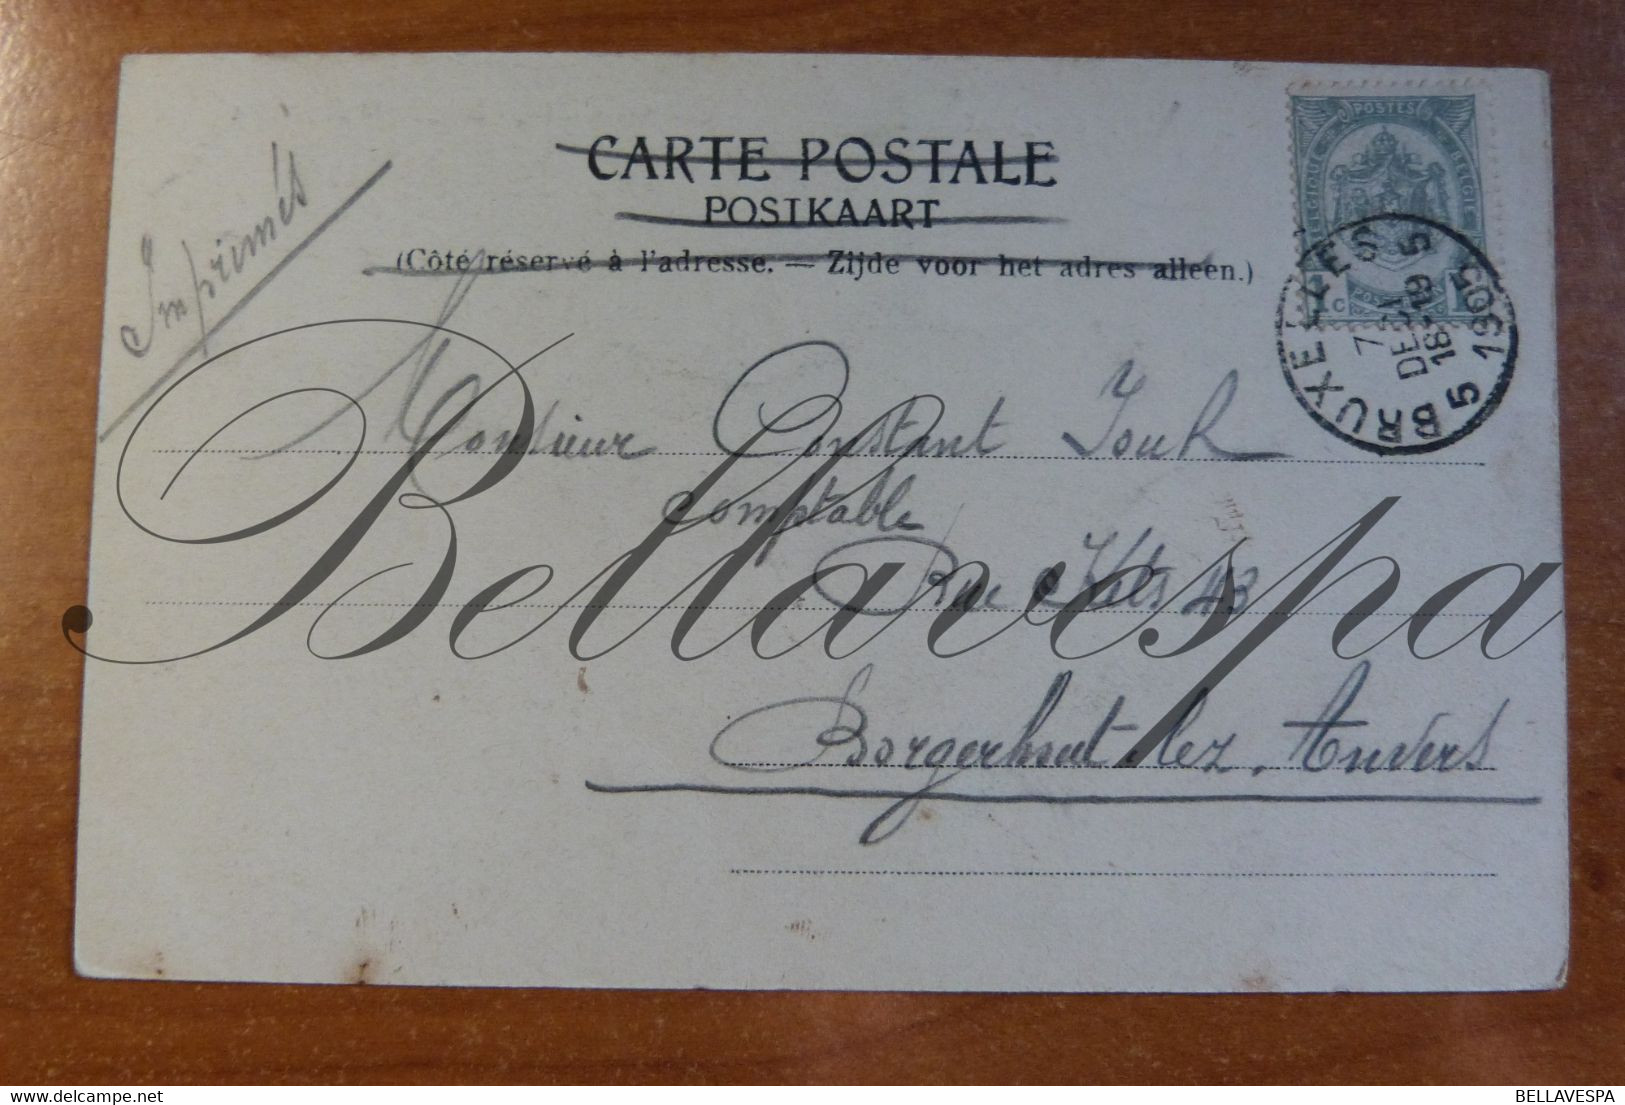 Imprimés
CARTE POSTALE
POSTKAART
(Côté réservé à l'adresse. — Zijde voor het adres alleen.)
POSTES
BELGIQUE BELGIE
BRUXELLES 5
7 DEC 18-19 1905
BRUXELLES 5
Monsieur Constant
comptable
Rue Kets 43
Borgerhout lez. Anvers
Bellavespa
delcampe.net
BELLAVESPA